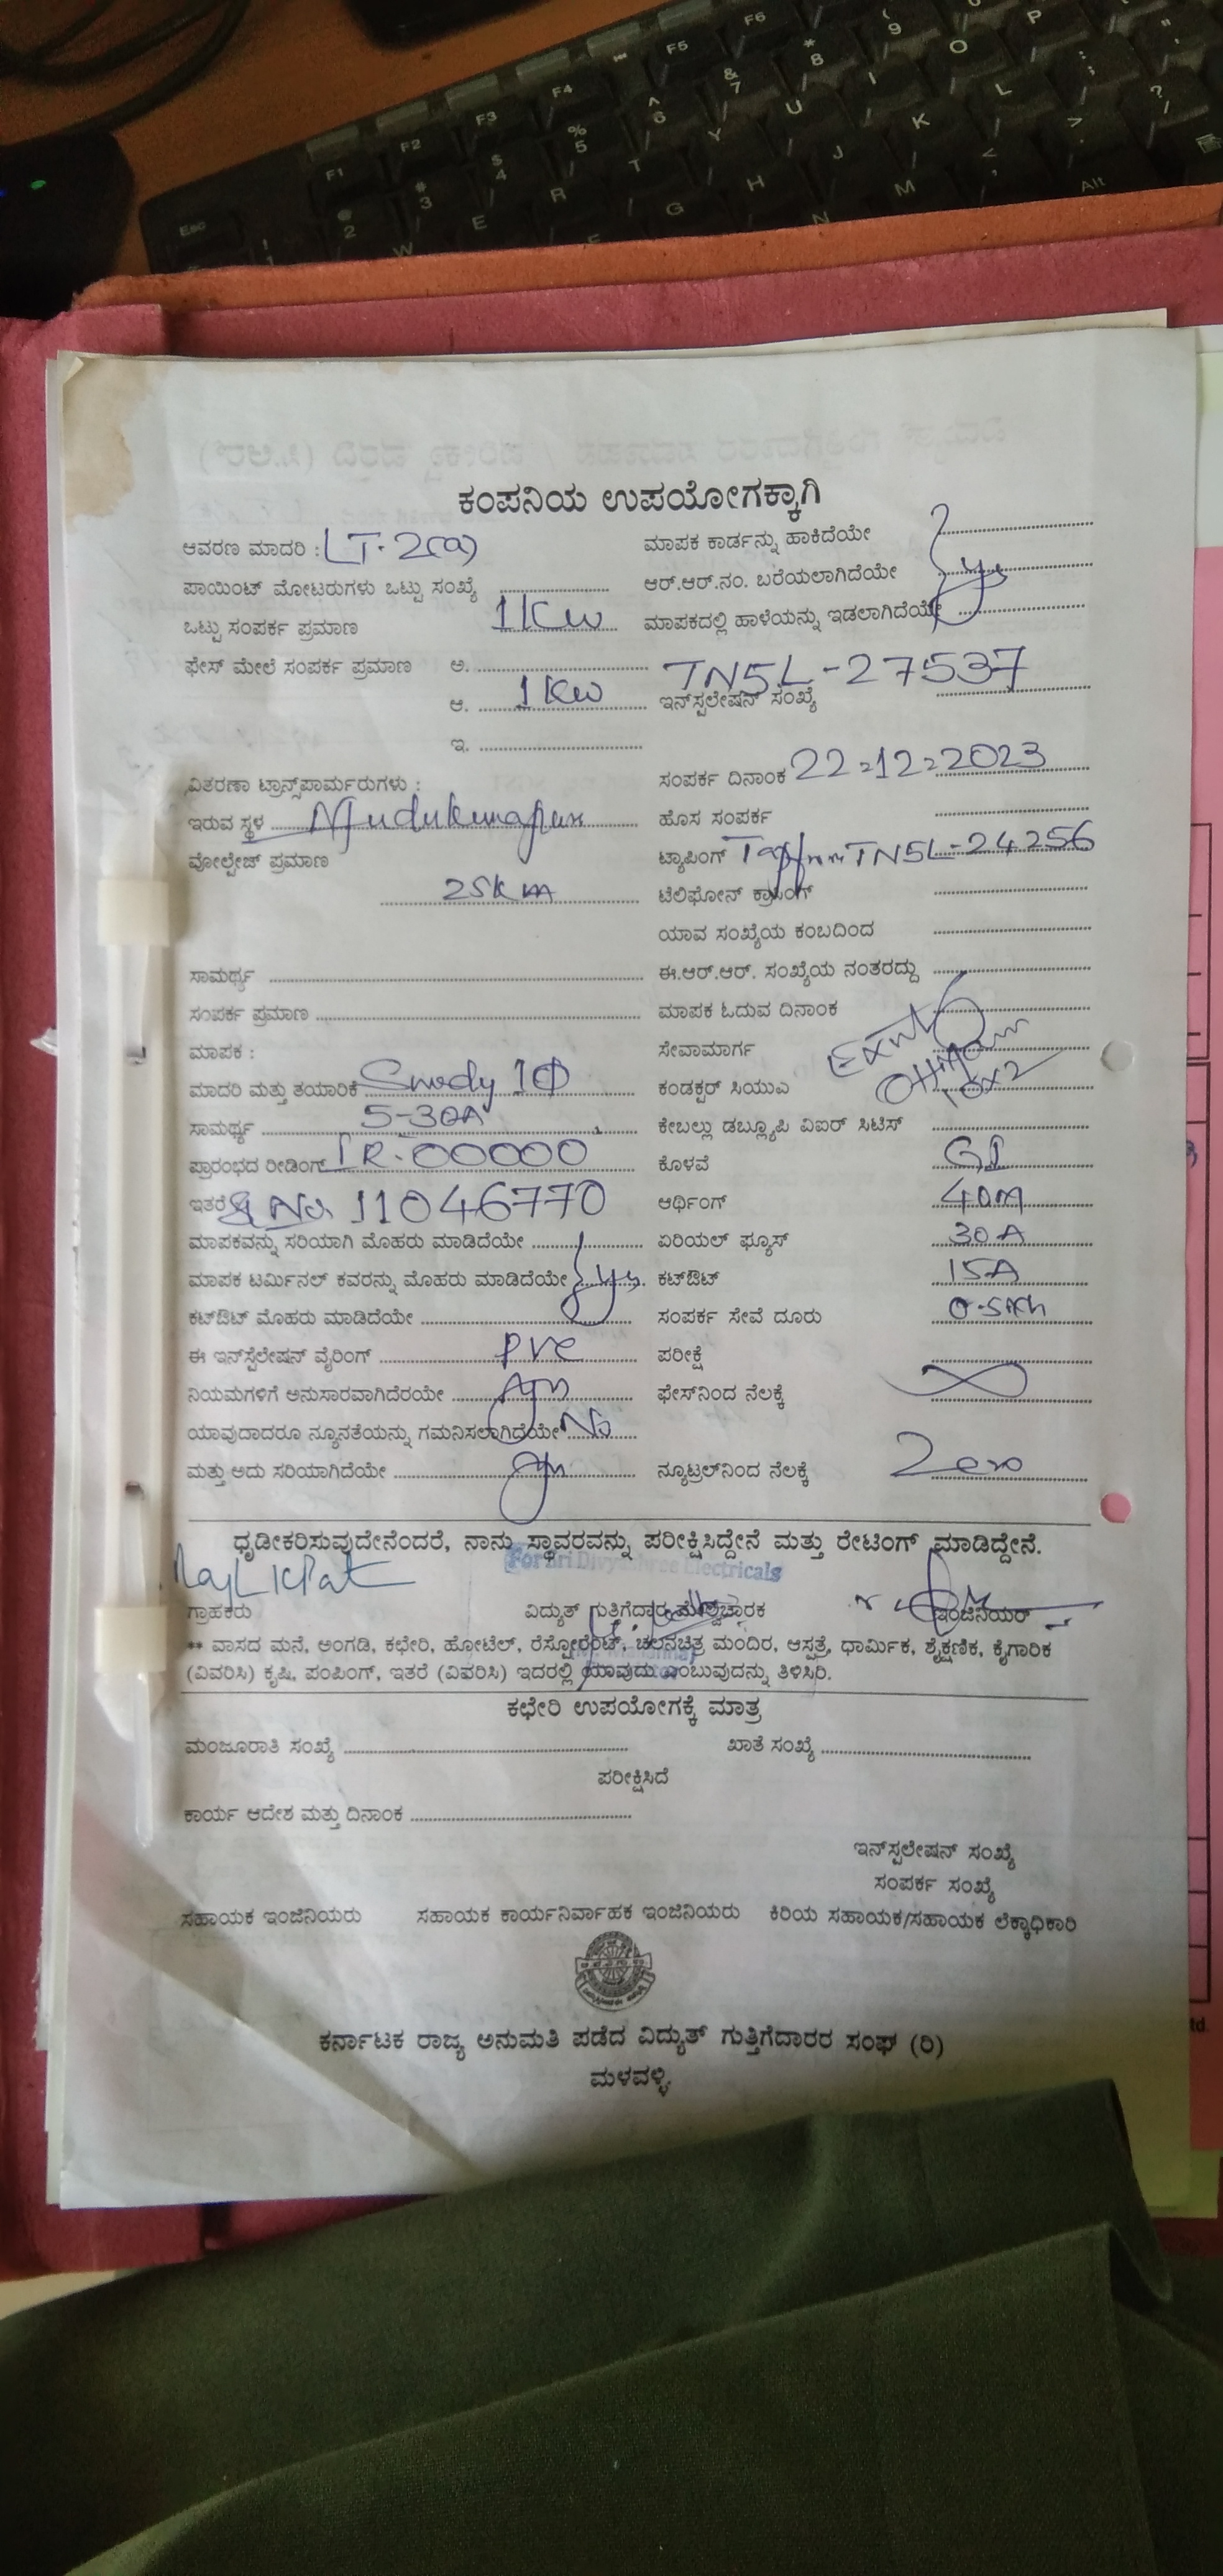 ಕಂಪನಿಯ ಉಪಯೋಗಕ್ಕಾಗಿ
ಆವರಣ ಮಾದರಿ : LT-2(a)
ಮಾಪಕ ಕಾರ್ಡನ್ನು ಹಾಕಿದೆಯೇ
ಪಾಯಿಂಟ್ ಮೋಟರುಗಳು ಒಟ್ಟು ಸಂಖ್ಯೆ
ಆರ್.ಆರ್.ನಂ. ಬರೆಯಲಾಗಿದೆಯೇ yes
ಒಟ್ಟು ಸಂಪರ್ಕ ಪ್ರಮಾಣ 1KW
ಮಾಪಕದಲ್ಲಿ ಹಾಳೆಯನ್ನು ಇಡಲಾಗಿದೆಯೇ
ಫೇಸ್ ಮೇಲೆ ಸಂಪರ್ಕ ಪ್ರಮಾಣ ಅ.
TN5L-27537
ಆ. 1KW
ಇನ್‌ಸ್ಪಲೇಷನ್ ಸಂಖ್ಯೆ
ಇ.
ವಿತರಣಾ ಟ್ರಾನ್ಸ್‌ಫಾರ್ಮರುಗಳು :
ಸಂಪರ್ಕ ದಿನಾಂಕ 22-12-2023
ಇರುವ ಸ್ಥಳ
ಹೊಸ ಸಂಪರ್ಕ
ವೋಲ್ಟೇಜ್ ಪ್ರಮಾಣ
ಟ್ಯಾಪಿಂಗ್ TN5L-24256
25
ಟೆಲಿಫೋನ್ ಕ್ರಾಸಿಂಗ್
ಯಾವ ಸಂಖ್ಯೆಯ ಕಂಬದಿಂದ
ಸಾಮರ್ಥ್ಯ
ಈ.ಆರ್.ಆರ್. ಸಂಖ್ಯೆಯ ನಂತರದ್ದು
ಸಂಪರ್ಕ ಪ್ರಮಾಣ
ಮಾಪಕ ಓದುವ ದಿನಾಂಕ
ಮಾಪಕ :
ಸೇವಾಮಾರ್ಗ
ಮಾದರಿ ಮತ್ತು ತಯಾರಿಕೆ 1Φ
ಕಂಡಕ್ಟರ್ ಸಿಯುಎ
ಸಾಮರ್ಥ್ಯ 5-30A
ಕೇಬಲ್ಲು ಡಬ್ಲ್ಯೂಪಿ ವಿಐರ್ ಸಿಟಿಸ್
ಪ್ರಾರಂಭದ ರೀಡಿಂಗ್ IR-00000
ಕೊಳವೆ GI
ಇತರೆ No 11046770
ಅರ್ಥಿಂಗ್ 40m
ಮಾಪಕವನ್ನು ಸರಿಯಾಗಿ ಮೊಹರು ಮಾಡಿದೆಯೇ
ಏರಿಯಲ್ ಫ್ಯೂಸ್ 30A
ಮಾಪಕ ಟರ್ಮಿನಲ್ ಕವರನ್ನು ಮೊಹರು ಮಾಡಿದೆಯೇ yes
ಕಟ್‌ಔಟ್ 15A
ಕಟ್‌ಔಟ್ ಮೊಹರು ಮಾಡಿದೆಯೇ
ಸಂಪರ್ಕ ಸೇವೆ ದೂರು
ಈ ಇನ್‌ಸ್ಪೆಲೇಷನ್ ವೈರಿಂಗ್ PVC
ಪರೀಕ್ಷೆ
ನಿಯಮಗಳಿಗೆ ಅನುಸಾರವಾಗಿದೆರಯೇ
ಫೇಸ್‌ನಿಂದ ನೆಲಕ್ಕೆ ∞
ಯಾವುದಾದರೂ ನ್ಯೂನತೆಯನ್ನು ಗಮನಿಸಲಾಗಿದೆಯೇ No
ಮತ್ತು ಅದು ಸರಿಯಾಗಿದೆಯೇ
ನ್ಯೂಟ್ರಲ್‌ನಿಂದ ನೆಲಕ್ಕೆ Zero
ಧೃಡೀಕರಿಸುವುದೇನೆಂದರೆ, ನಾನು ಸ್ಥಾವರವನ್ನು ಪರೀಕ್ಷಿಸಿದ್ದೇನೆ ಮತ್ತು ರೇಟಿಂಗ್ ಮಾಡಿದ್ದೇನೆ.
For Sri Divyashree Electricals
ಗ್ರಾಹಕರು
ವಿದ್ಯುತ್ ಗುತ್ತಿಗೆದಾರ ಮೇಲ್ವಿಚಾರಕ
ಇಂಜಿನಿಯರ್
** ವಾಸದ ಮನೆ, ಅಂಗಡಿ, ಕಛೇರಿ, ಹೋಟೆಲ್, ರೆಸ್ಟೋರೆಂಟ್, ಚಲನಚಿತ್ರ ಮಂದಿರ, ಆಸ್ಪತ್ರೆ, ಧಾರ್ಮಿಕ, ಶೈಕ್ಷಣಿಕ, ಕೈಗಾರಿಕ
(ವಿವರಿಸಿ) ಕೃಷಿ, ಪಂಪಿಂಗ್, ಇತರೆ (ವಿವರಿಸಿ) ಇದರಲ್ಲಿ ಯಾವುದು ಎಂಬುವುದನ್ನು ತಿಳಿಸಿರಿ.
ಕಛೇರಿ ಉಪಯೋಗಕ್ಕೆ ಮಾತ್ರ
ಮಂಜೂರಾತಿ ಸಂಖ್ಯೆ
ಖಾತೆ ಸಂಖ್ಯೆ
ಪರೀಕ್ಷಿಸಿದೆ
ಕಾರ್ಯ ಆದೇಶ ಮತ್ತು ದಿನಾಂಕ
ಇನ್‌ಸ್ಪಲೇಷನ್ ಸಂಖ್ಯೆ
ಸಂಪರ್ಕ ಸಂಖ್ಯೆ
ಸಹಾಯಕ ಇಂಜಿನಿಯರು
ಸಹಾಯಕ ಕಾರ್ಯನಿರ್ವಾಹಕ ಇಂಜಿನಿಯರು
ಕಿರಿಯ ಸಹಾಯಕ/ಸಹಾಯಕ ಲೆಕ್ಕಾಧಿಕಾರಿ
ಕರ್ನಾಟಕ ರಾಜ್ಯ ಅನುಮತಿ ಪಡೆದ ವಿದ್ಯುತ್ ಗುತ್ತಿಗೆದಾರರ ಸಂಘ (ರಿ)
ಮಳವಳ್ಳಿ